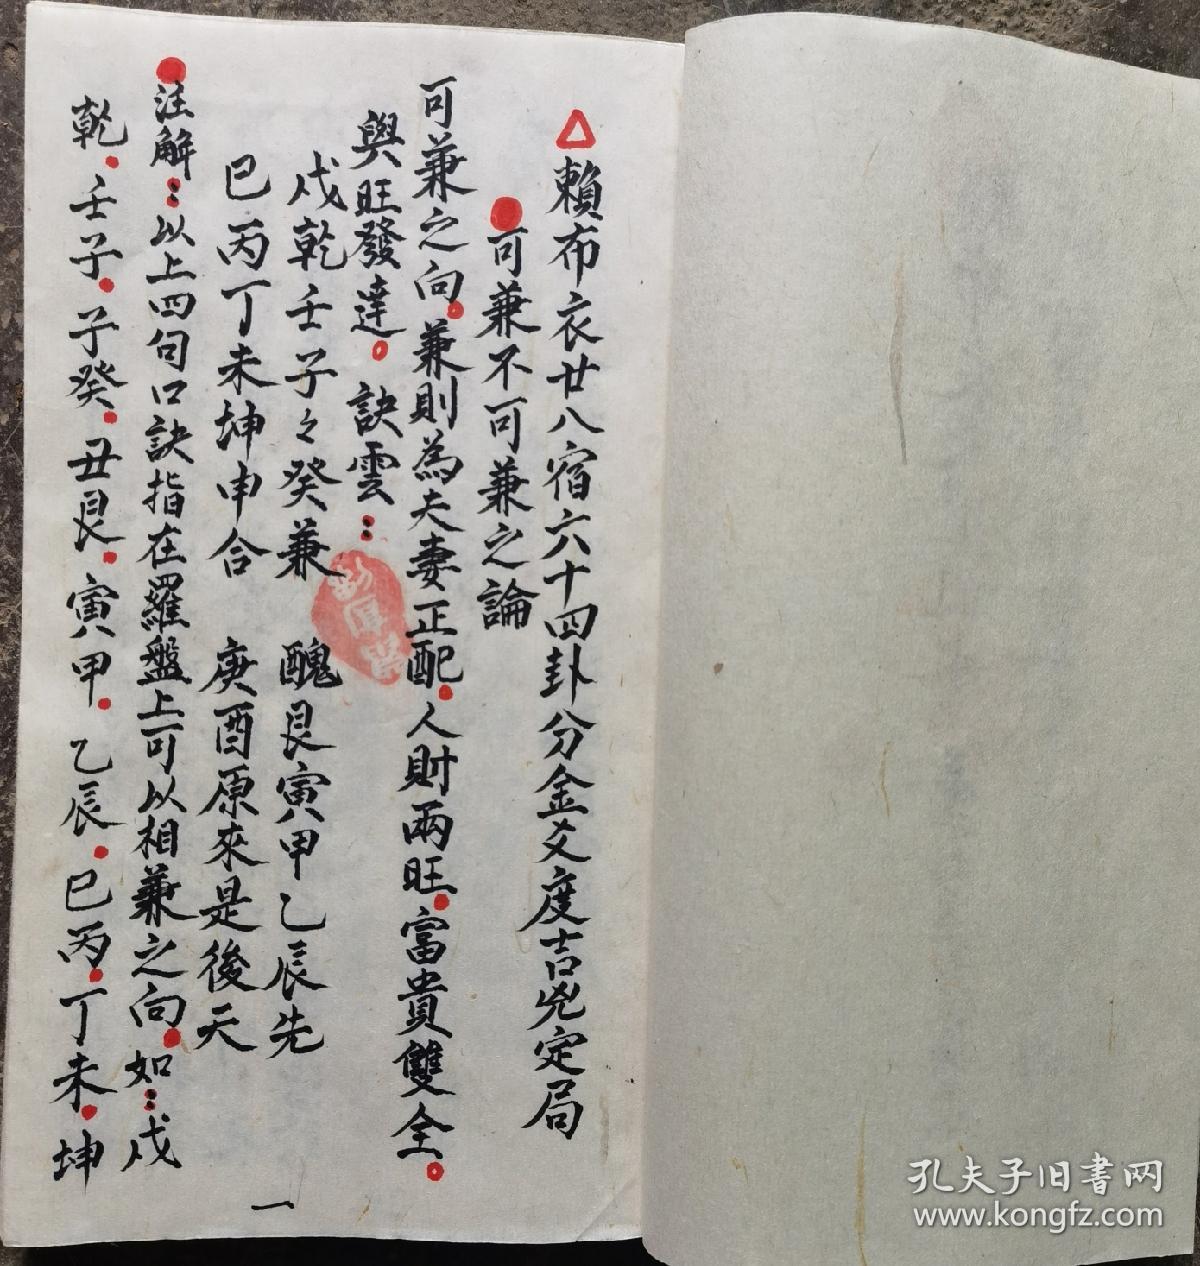 △賴布衣廿八宿六十四卦分金爻度吉兇定局
●可兼不可兼之論
可兼之向。兼則為夫妻正配。人財兩旺。富貴雙全。
興旺發達。訣雲：
戍乾壬子々癸兼 醜艮寅甲乙辰先
巳丙丁未坤申合 庚酉原來是後天
●注解：以上四句口訣指在羅盤上可以相兼之向。如：戍
乾。壬子。子癸。丑艮。寅甲。乙辰。巳丙。丁未。坤
一
孔夫子旧书网
www.kongfz.com